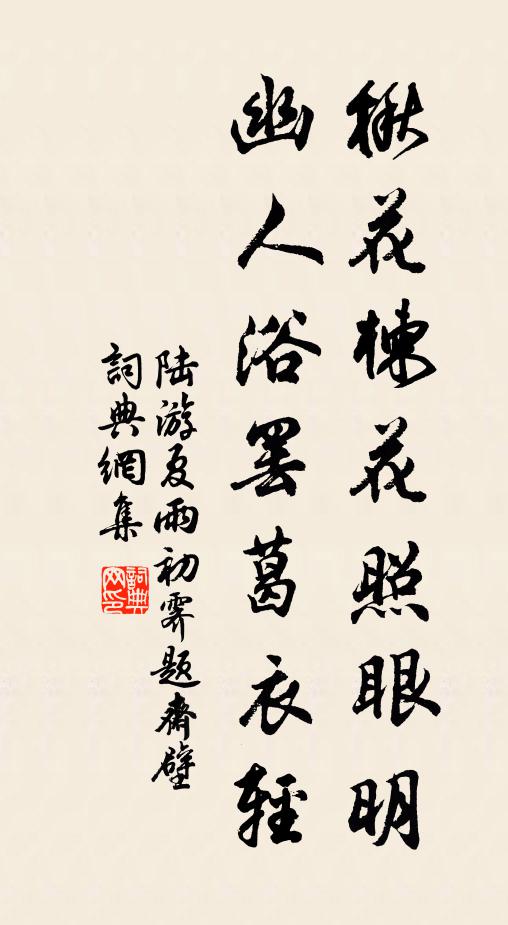 楸花楝花照眼明
幽人浴罢葛衣輕
陆游夏雨初霽题齋壁
詞典網集
詞典
网印